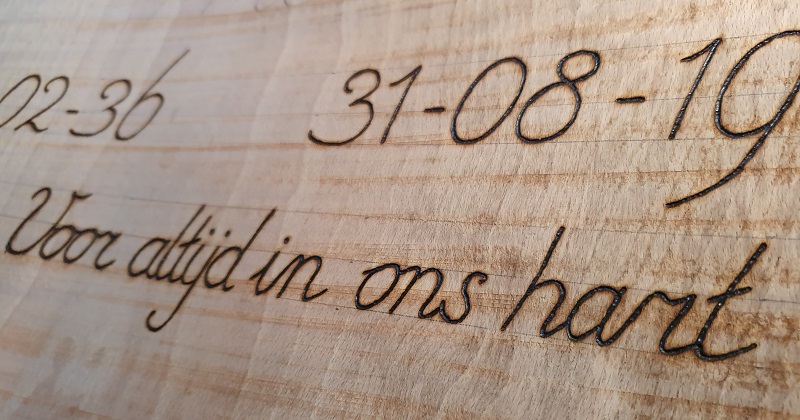 02-36 31-08-19
Voor altijd in ons hart